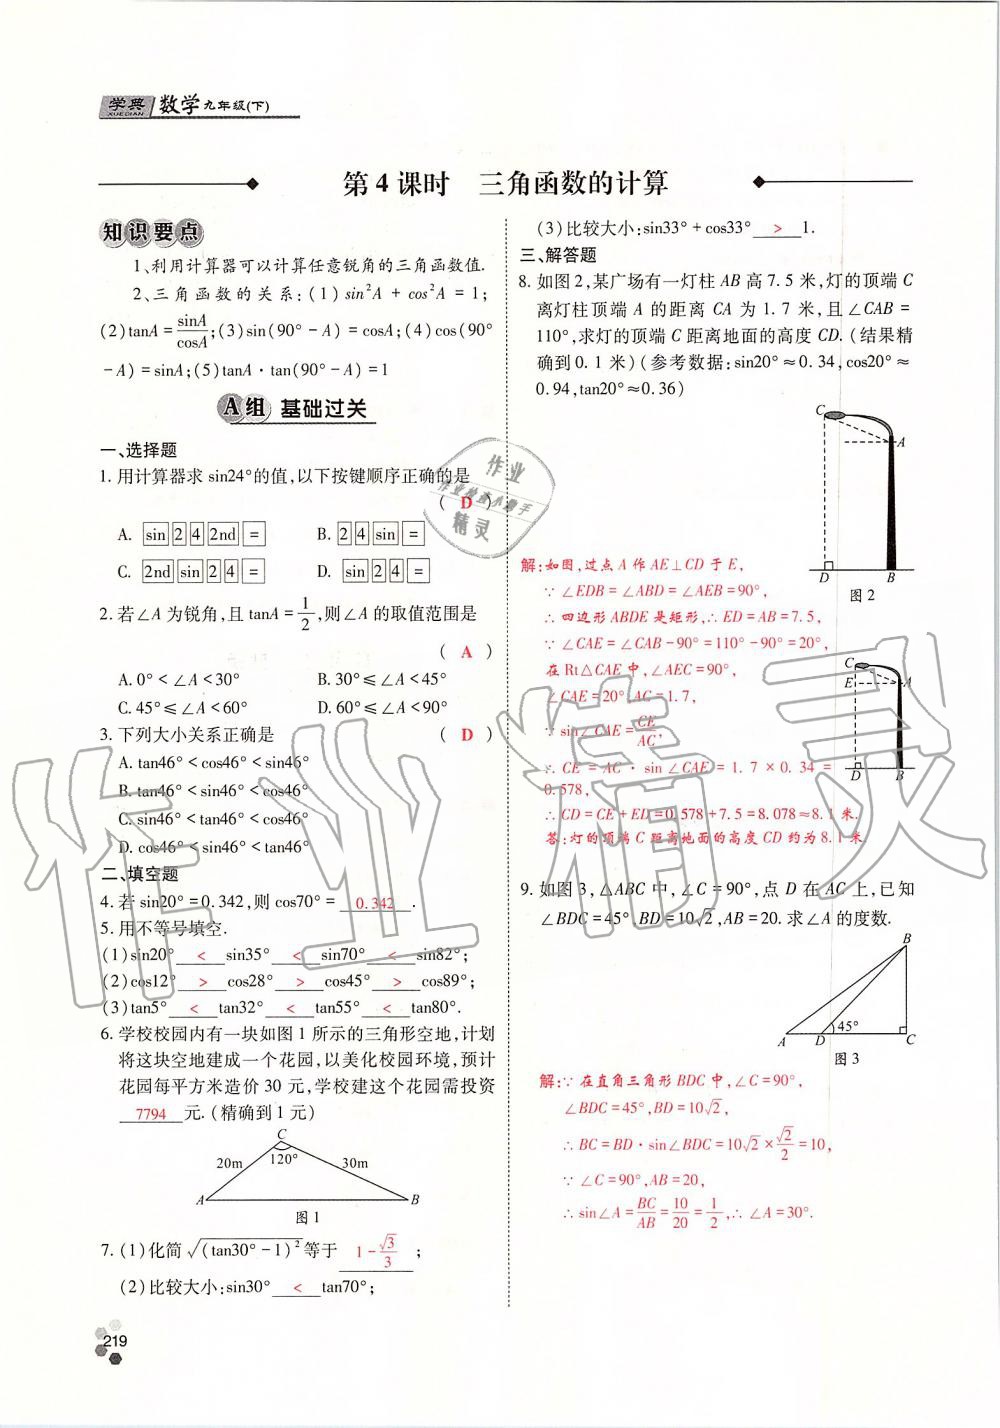 学典 数学九年级(下)
XUEDIAN
第4课时 三角函数的计算
知识要点
1、利用计算器可以计算任意锐角的三角函数值.
2、三角函数的关系:(1)sin²A + cos²A = 1;
(2)tanA = sinA/cosA;(3)sin(90° - A) = cosA;(4)cos(90°
- A) = sinA;(5)tanA·tan(90° - A) = 1
A组 基础过关
一、选择题
1. 用计算器求 sin24°的值,以下按键顺序正确的是
( D )
A. sin 2 4 2nd = B. 2 4 sin =
C. 2nd sin 2 4 = D. sin 2 4 =
2. 若∠A 为锐角,且 tanA = 1/2,则∠A 的取值范围是
( A )
A. 0° < ∠A < 30° B. 30° ≤ ∠A < 45°
C. 45° ≤ ∠A < 60° D. 60° ≤ ∠A < 90°
3. 下列大小关系正确是 ( D )
A. tan46° < cos46° < sin46°
B. tan46° < sin46° < cos46°
C. sin46° < tan46° < cos46°
D. cos46° < sin46° < tan46°
二、填空题
4. 若 sin20° = 0.342,则 cos70° = 0.342 .
5. 用不等号填空.
(1)sin20° < sin35° < sin70° < sin82°;
(2)cos12° > cos28° > cos45° > cos89°;
(3)tan5° < tan32° < tan55° < tan80°.
6. 学校校园内有一块如图 1 所示的三角形空地,计划
将这块空地建成一个花园,以美化校园环境,预计
花园每平方米造价 30 元,学校建这个花园需投资
7794 元.(精确到 1 元)
C
20m 120° 30m
A B
图 1
7. (1)化简 √(tan30° - 1)² 等于 1 - √3/3 ;
(2)比较大小:sin30° < tan70°;
219
(3)比较大小:sin33° + cos33° > 1.
三、解答题
8. 如图 2,某广场有一灯柱 AB 高 7.5 米,灯的顶端 C
离灯柱顶端 A 的距离 CA 为 1.7 米,且∠CAB =
110°,求灯的顶端 C 距离地面的高度 CD.(结果精
确到 0.1 米)(参考数据:sin20° ≈ 0.34,cos20° ≈
0.94,tan20° ≈ 0.36)
C
A
D B
图 2
解:如图,过点 A 作 AE⊥CD 于 E,
∵ ∠EDB = ∠ABD = ∠AEB = 90°,
∴ 四边形 ABDE 是矩形,∴ ED = AB = 7.5,
∵ ∠CAE = ∠CAB - 90° = 110° - 90° = 20°,
在 Rt△CAE 中,∠AEC = 90°,
∠CAE = 20°,AC = 1.7,
∵ sin∠CAE = CE/AC,
∴ CE = AC · sin∠CAE = 1.7 × 0.34 =
0.578,
∴ CD = CE + ED = 0.578 + 7.5 = 8.078 ≈ 8.1 米.
答:灯的顶端 C 距离地面的高度 CD 约为 8.1 米
C
E A
D B
9. 如图 3,△ABC 中,∠C = 90°,点 D 在 AC 上,已知
∠BDC = 45°,BD = 10√2,AB = 20. 求∠A 的度数.
B
45°
A D C
图 3
解:∵ 在直角三角形 BDC 中,∠C = 90°,
∠BDC = 45°,BD = 10√2,
∴ BC = BD·sin∠BDC = 10√2 × √2/2 = 10,
∵ ∠C = 90°,AB = 20,
∴ sin∠A = BC/AB = 10/20 = 1/2,∴ ∠A = 30°.
作业
作业检查小助手
精灵
作业精灵